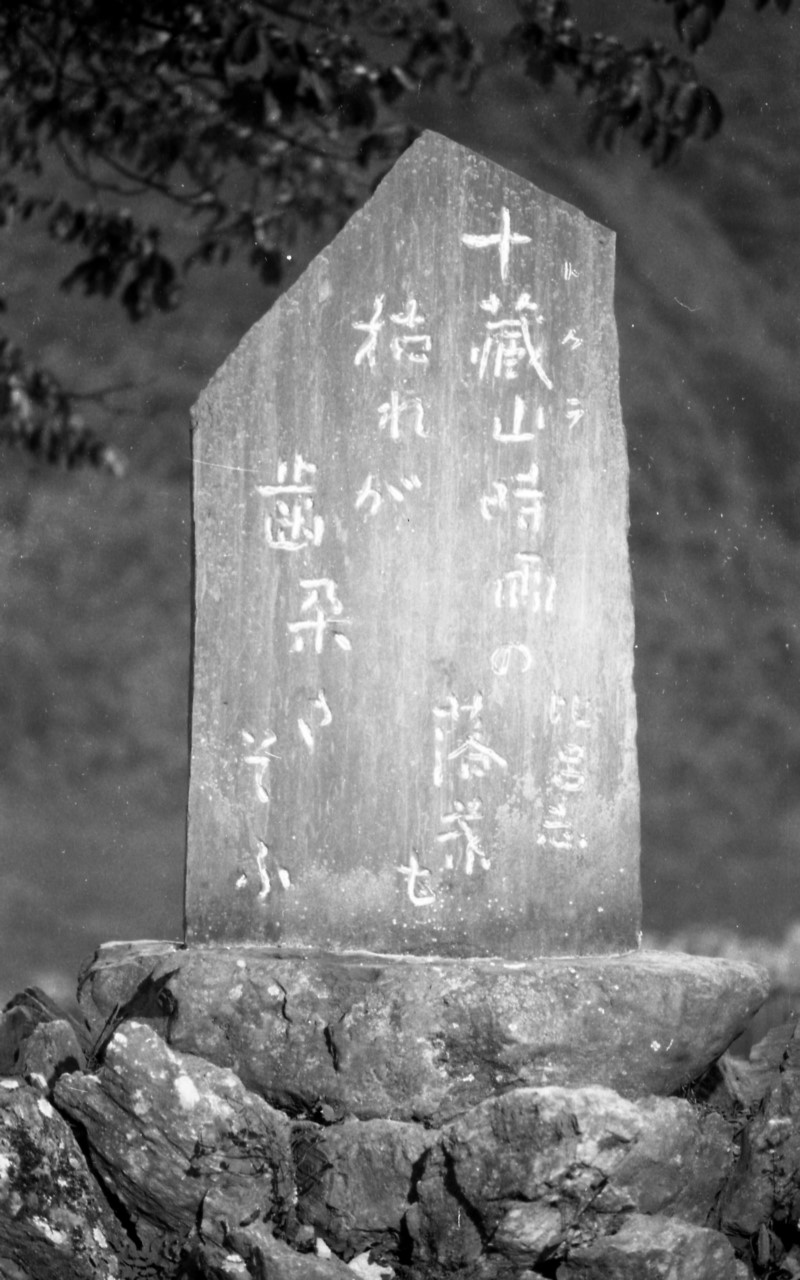 十藏山時雨の
トクラ
落葉
枯れが
も
歯朶
そふ